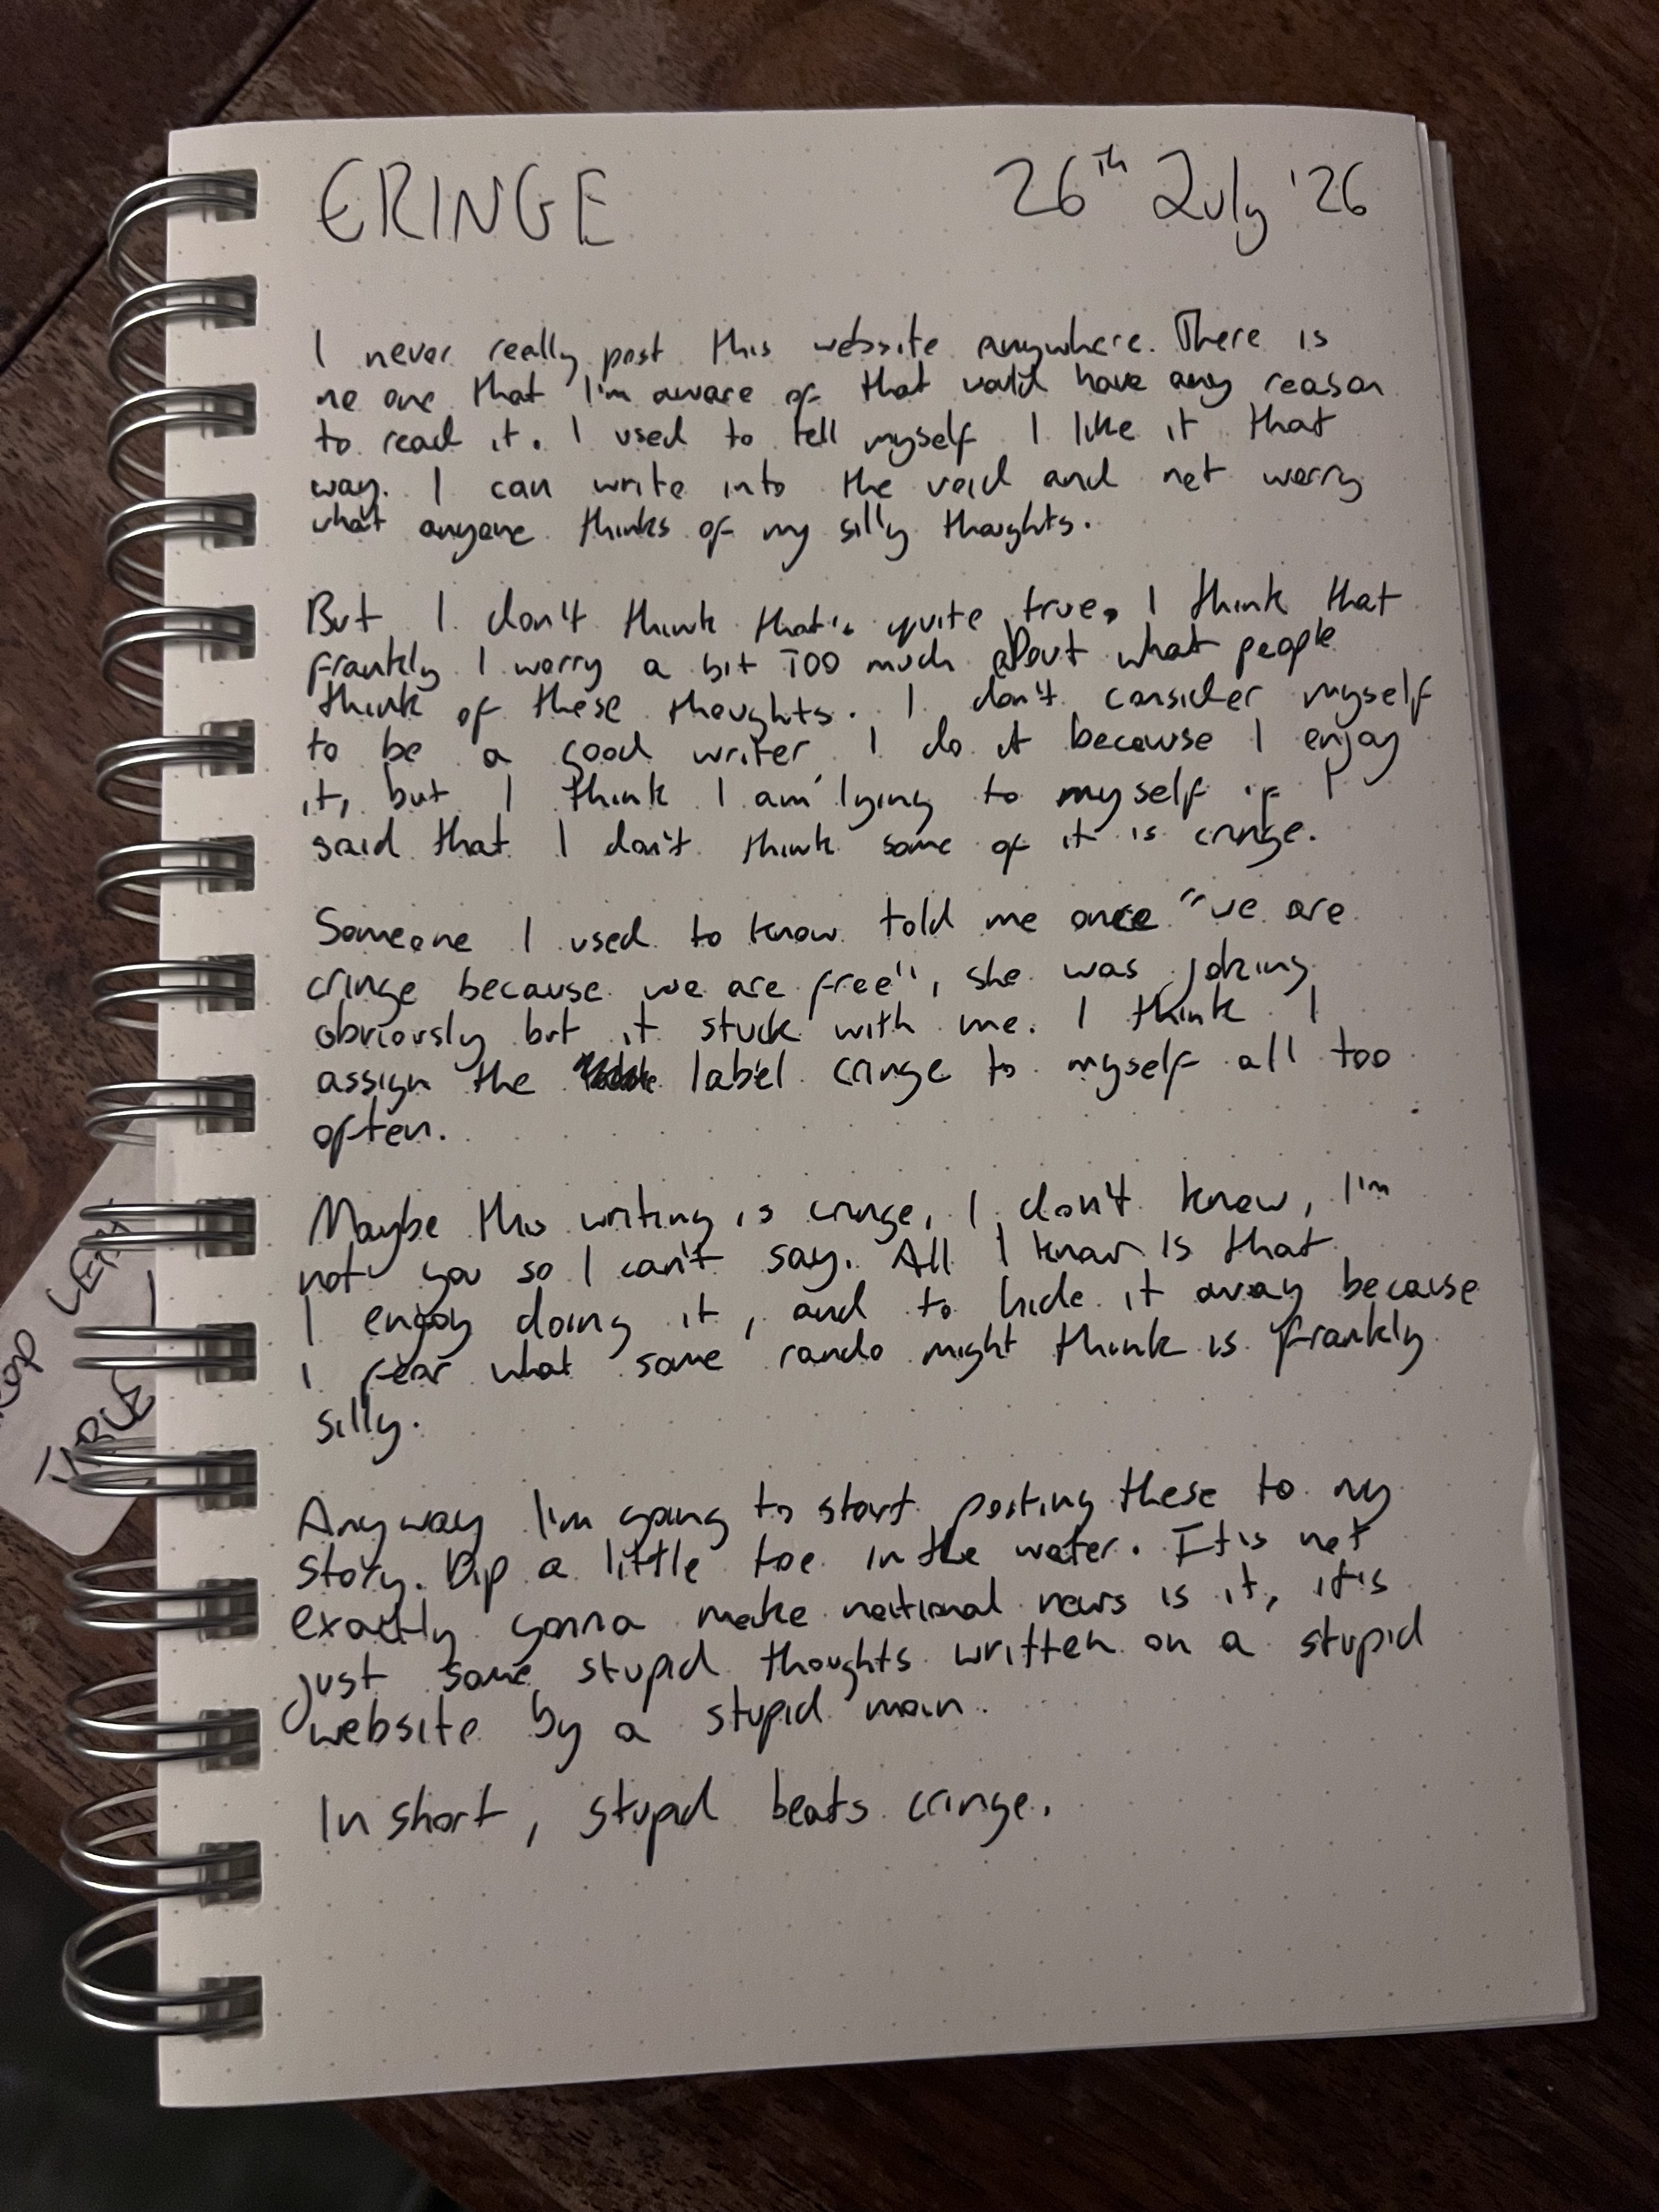 CRINGE 26th July '26
I never really post this website anywhere. There is
no one that I'm aware of that would have any reason
to read it. I used to tell myself I like it that
way. I can write into the void and not worry
what anyone thinks of my silly thoughts.
But I don't think that's quite true, I think that
frankly I worry a bit TOO much about what people
think of these thoughts. I don't consider myself
to be a good writer, I do it because I enjoy
it, but I think I am lying to myself if I
said that I don't think some of it is cringe.
Someone I used to know told me once "we are
cringe because we are free", she was joking
obviously but it stuck with me. I think I
assign the label cringe to myself all too
often.
Maybe this writing is cringe, I don't know, I'm
not you so I can't say. All I know is that
I enjoy doing it, and to hide it away because
I fear what some rando might think is frankly
silly.
Anyway I'm going to start posting these to my
story. Dip a little toe in the water. It is not
exactly gonna make national news is it, it's
just some stupid thoughts written on a stupid
website by a stupid man.
In short, stupid beats cringe.
LEAF
TABLE